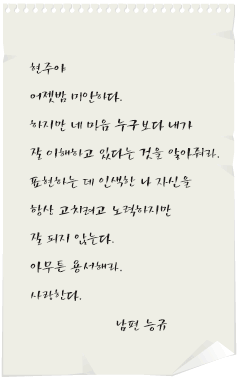 현주야
어젯밤 미안하다.
하지만 네 마음 누구보다 내가
잘 이해하고 있다는 것을 알아줘라.
표현하는 데 인색한 나 자신을
항상 고치려고 노력하지만
잘 되지 않는다.
아무튼 용서해라.
사랑한다.
남편 능규